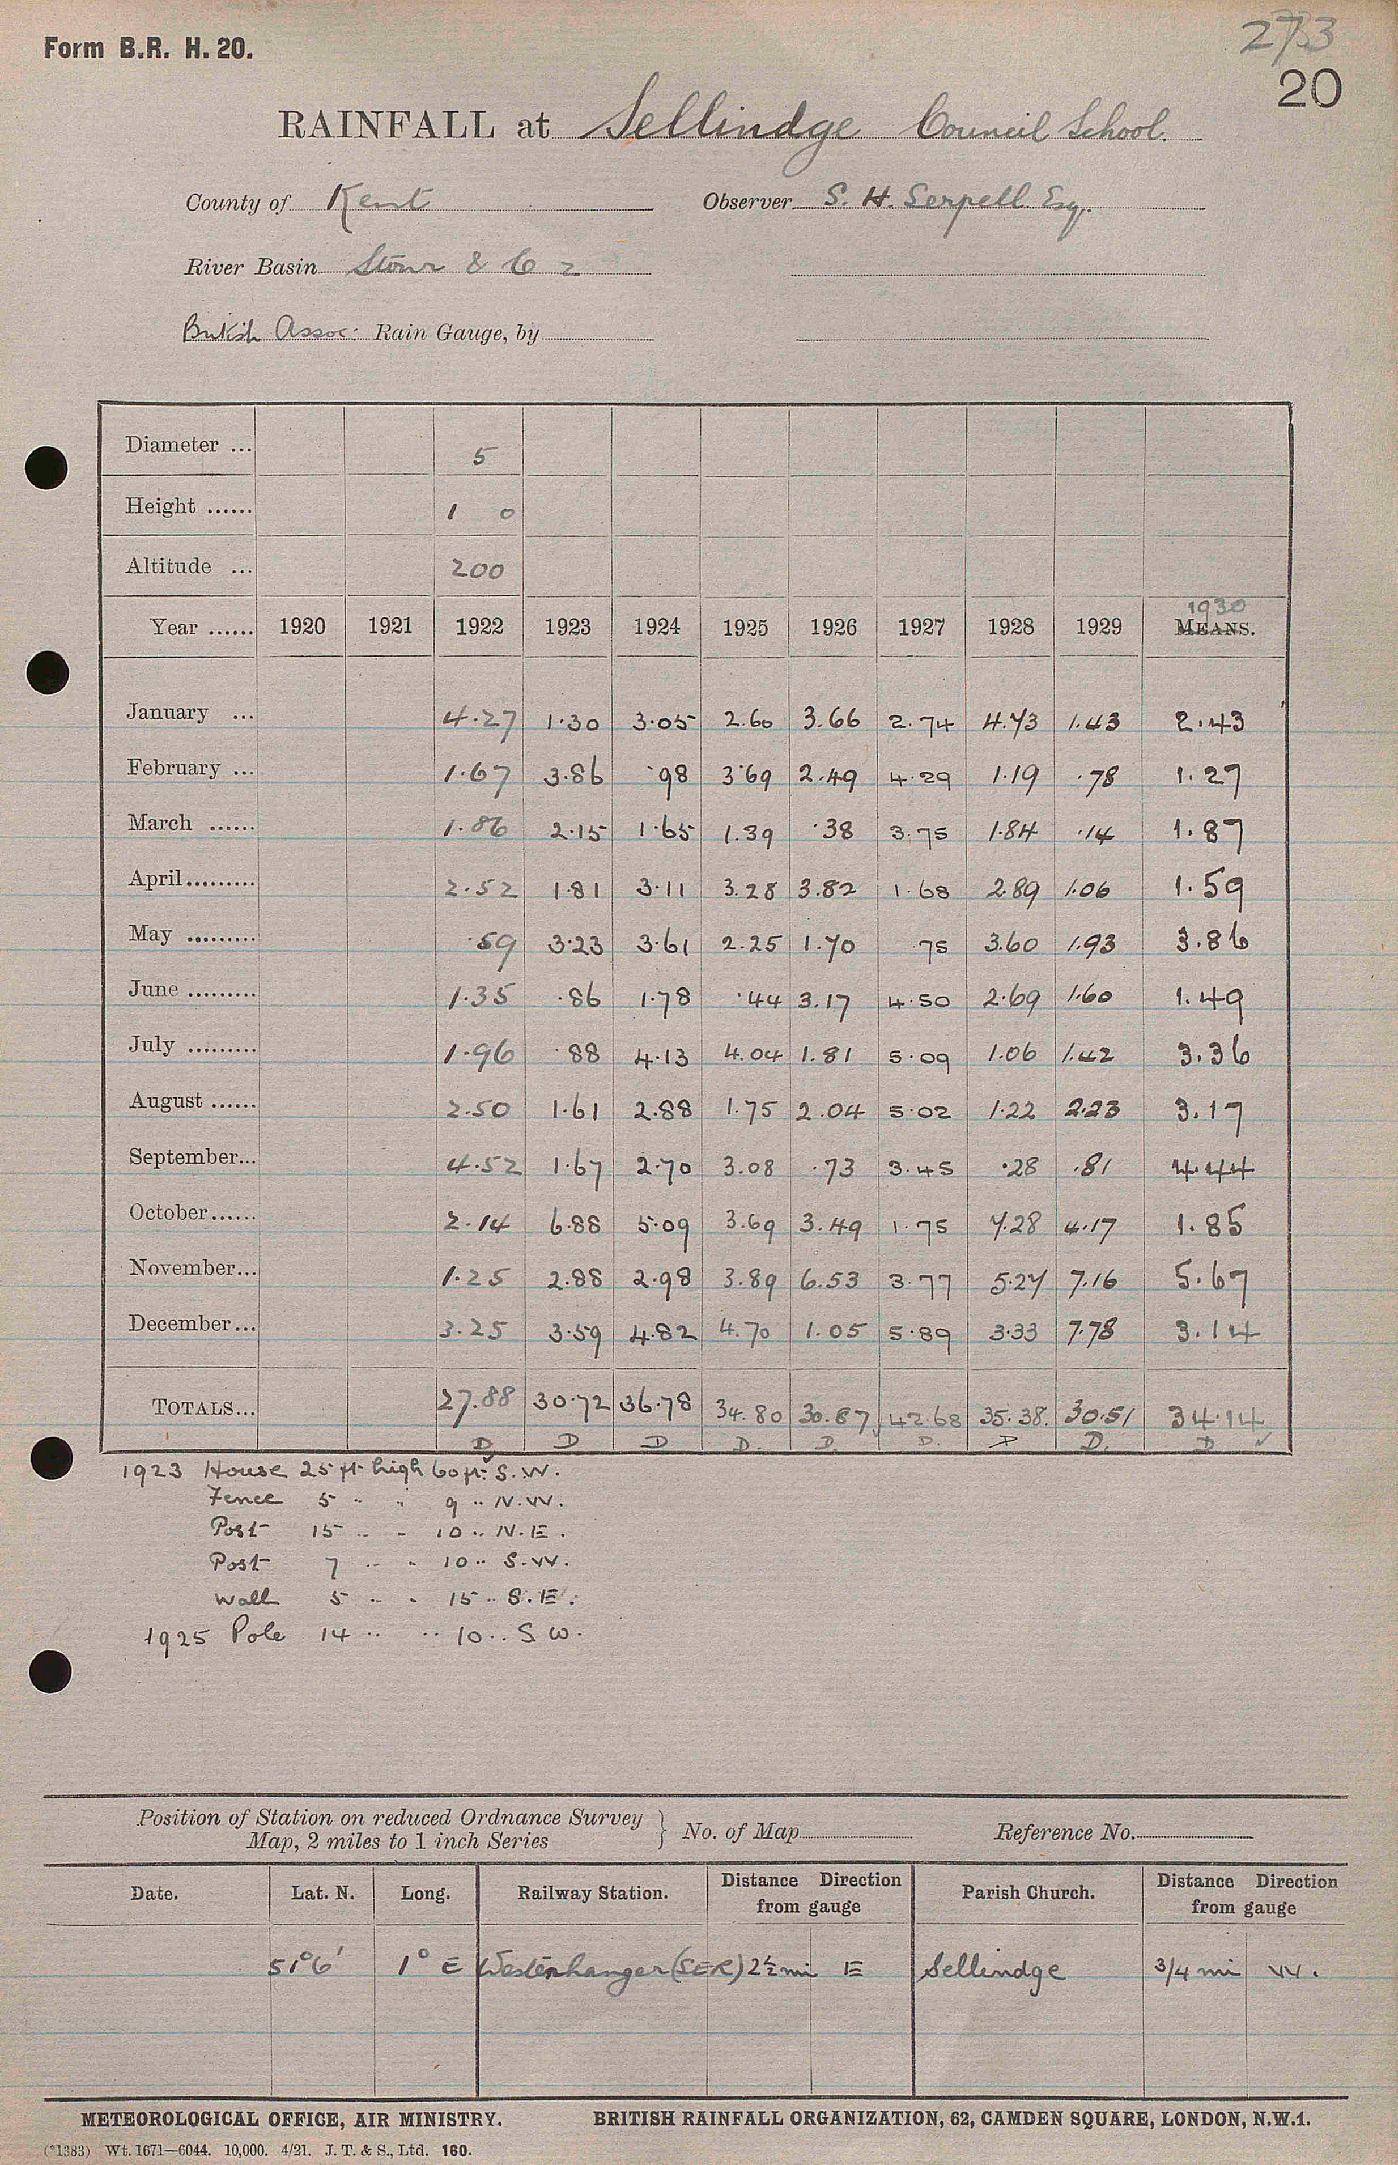 Form B.R. H. 20.
273
20
RAINFALL at Sellindge Council School.
County of Kent Observer S. H. Serpell Esq.
River Basin Stour & C 2
British Assoc: Rain Gauge, by
Diameter ... 5
Height ...... 1 0
Altitude ... 200
1930
Year ...... 1920 1921 1922 1923 1924 1925 1926 1927 1928 1929 MEANS.
January ... 4.27 1.30 3.05 2.60 3.66 2.74 4.73 1.43 2.43
February ... 1.67 3.86 .98 3.69 2.49 4.29 1.19 .78 1.27
March ...... 1.86 2.15 1.65 1.39 .38 3.75 1.84 .14 1.87
April......... 2.52 1.81 3.11 3.28 3.82 1.68 2.89 1.06 1.59
May ......... .59 3.23 3.61 2.25 1.70 .75 3.60 1.93 3.86
June ......... 1.35 .86 1.78 .44 3.17 4.50 2.69 1.60 1.49
July ......... 1.96 .88 4.13 4.04 1.81 5.09 1.06 1.42 3.36
August ...... 2.50 1.61 2.88 1.75 2.04 5.02 1.22 2.23 3.17
September... 4.52 1.67 2.70 3.08 .73 3.45 .28 .81 4.44
October...... 2.14 6.88 5.09 3.69 3.49 1.75 7.28 4.17 1.85
November... 1.25 2.88 2.98 3.89 6.53 3.77 5.27 7.16 5.67
December... 3.25 3.59 4.82 4.70 1.05 5.89 3.33 7.78 3.14
TOTALS... 27.88 30.72 36.78 34.80 30.87 42.68 35.38. 30.51 34.14
D D D D. D. D. D D. D ✓
1923 House 25 ft. high 60 ft. S.W.
Fence 5 .. .. 9 .. N.W.
Post 15 .. .. 10 .. N.E.
Post 7 .. .. 10 .. S.W.
Wall 5 .. .. 15 .. S.E.
1925 Pole 14 .. .. 10 .. S W.
Position of Station on reduced Ordnance Survey
Map, 2 miles to 1 inch Series } No. of Map Reference No.
Date. Lat. N. Long. Railway Station. Distance Direction from gauge Parish Church. Distance Direction from gauge
51° 6' 1° E Westenhanger (SER) 2½ mi E Sellindge 3/4 mi W.
METEOROLOGICAL OFFICE, AIR MINISTRY. BRITISH RAINFALL ORGANIZATION, 62, CAMDEN SQUARE, LONDON, N.W.1.
(*1383) Wt. 1671—6044. 10,000. 4/21. J. T. & S., Ltd. 160.